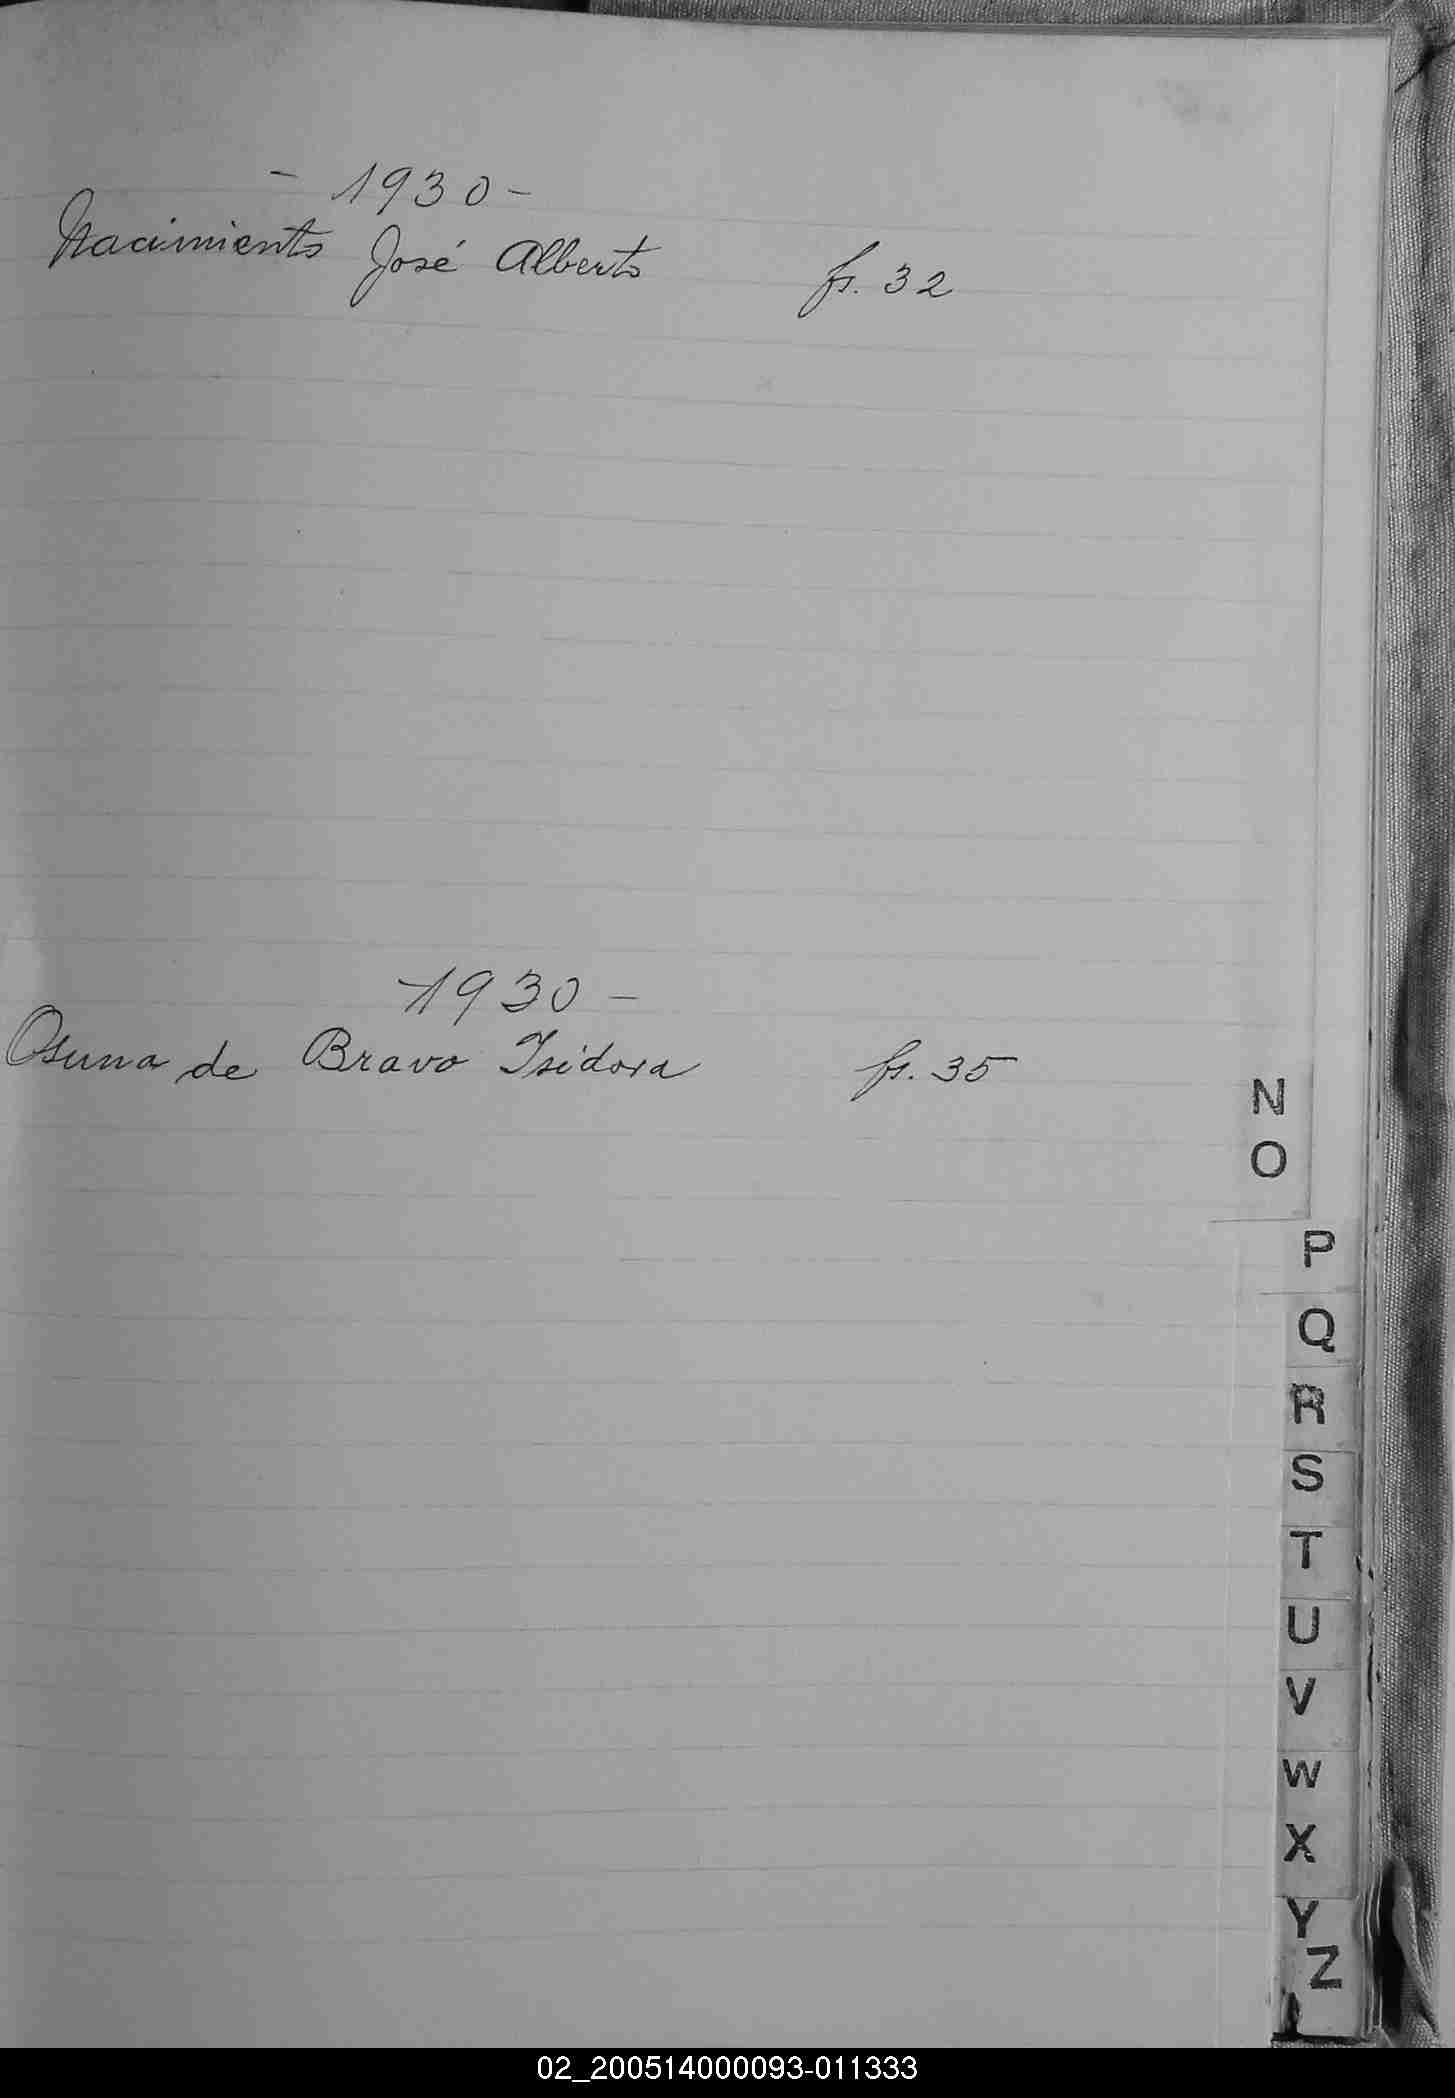 - 1930 -
Nacimiento José Alberto fs. 32
- 1930 -
Osuna de Bravo Isidora fs. 35
N
O
P
Q
R
S
T
U
V
W
X
Y
Z
02_200514000093-011333